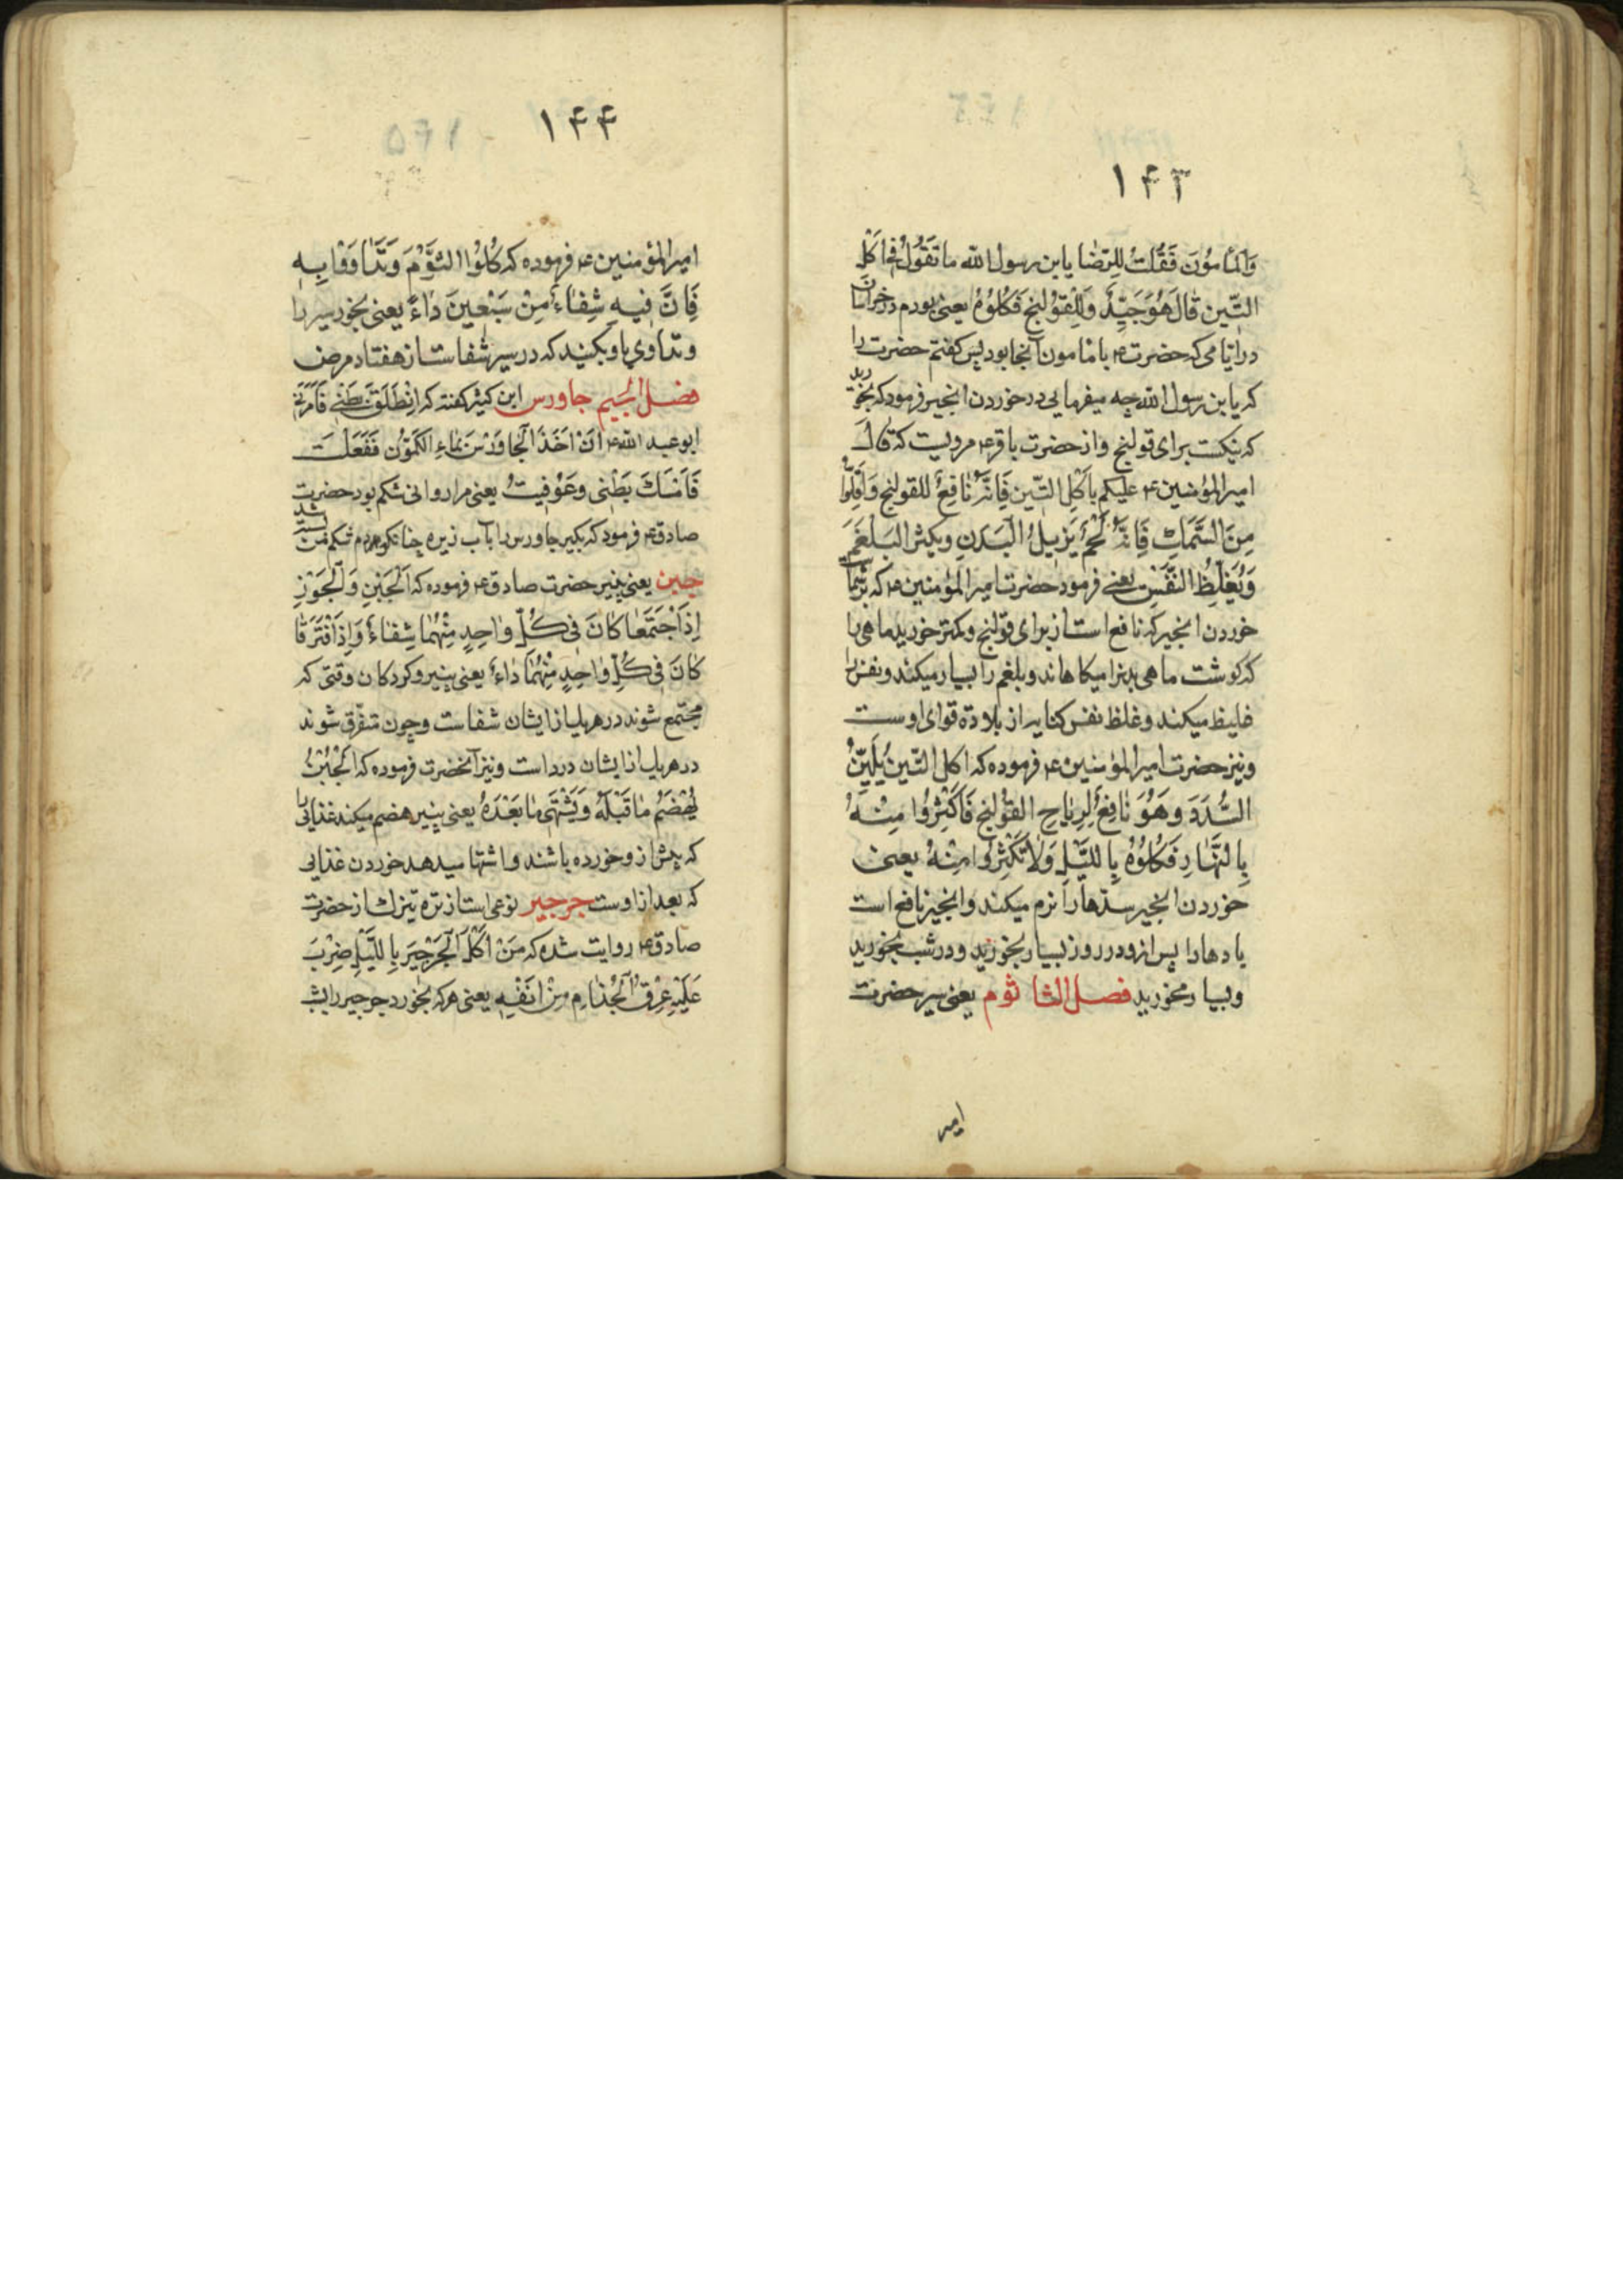 ۱۴۳
وَالمَأمُون فَقُلتُ لِلرِّضَا یابن رسول الله ما تَقُولُ فی اَکلِ
التّین قَالَ هُوَ جَیِّدٌ وَلِلقَوْلنج فَکُلُوهُ یعنی بودم در خراسان
در ایّامی که حضرت ع با مامون آنجا بود پس کفتم حضرت را
که یابن رسول الله چه میفرمایی در خوردن انجیر فرمود که بخورید
که نیکست برای قولنج و از حضرت باقر ع مرویست که قال
امیرالمؤمنین ع علیکم باَکلِ التّین فَاِنَّهُ نَافِعٌ للقولنج وَاَقِلّوا
مِنَ السَّمَکِ فَاِنَّ لَحمَهُ یَزبیلُ البَدَنِ ویکثر البَلغَمَ
وَیُغَلِّظُ النَّفَسَ یعنی فرمود حضرت امیرالمؤمنین ع که بر شما
خوردن انجیر که نافع است از برای قولنج و کمتر خورید ماهی را
که کوشت ماهی بدنرا میکاهاند و بلغم را بسیار میکند و نفس را
غلیظ میکند و غلظ نفس کنایه از بلادة قوای اوست
و نیز حضرت امیرالمؤمنین ع فرموده که اکل التّین یُلَیِّنُ
السُّدَدَ وهُوَ نَافِعٌ لِرِیَاحِ القَوْلنج فَاَکثِرُوا مِنهُ
بِالنَّهَارِ فَکُلُوهُ بِاللَّیلِ وَلَا تَکثِرُوا مِنهُ یعنی
خوردن انجیر سدّهارا نرم میکند و انجیر نافع است
بادهارا پس از و در روز بسیار بخورید و در شب بخورید
و بسیار مخورید فصل الثا ثوم یعنی سیر حضرت
امیر
۱۴۴
امیرالمؤمنین ع فرموده که کُلُوا الثَّوْمَ وَتَدَاوَوْا بِهِ
فَاِنَّ فیهِ شِفَاءٌ مِنْ سَبْعینَ دَاءً یعنی بخورید سیر را
و تداوی باو بکنید که در سیر شفاست از هفتاد مرض
فصل الجیم جاورس ابن کثیر کفته که اِنْطَلَقَ بَطْنی فَاَمَرَنی
ابوعبد الله ع اَنْ اَخَذَ الجَاوَرْسَ بمَاءِ الکَمّون فَفَعَلْتُ
فَاَمْسَکَ بَطْنی وعُوْفِیتُ یعنی مرا روانی شکم بود حضرت
صادق ع فرمود که بکیر جاورس را بآب زیره چنا نکو کردم شکم من بسته شد
جبن یعنی پنیر حضرت صادق ع فرموده که اَلجُبنِ وَالجَوْزِ
اِذَا جْتَمَعَا کَانَ فی کُلِّ وَاحِدٍ مِنْهُمَا شِفَاءٌ وَاِذَا فْتَرَقَا
کَانَ فی کُلِّ وَاحِدٍ مِنْهُمَا دَاءٌ یعنی پنیر و کردکان وقتی که
مجتمع شوند در هریک از ایشان شفاست و چون متفرّق شوند
در هریک از ایشان درد است و نیز آنحضرت فرموده که الجُبُنُّ
یُهْضَمُ مَا قَبْلَهُ وَیَشْتَهی مَا بَعْدَهُ یعنی پنیر هضم میکند غذایی را
که پیش از و خورده باشند و اشتها میدهد خوردن غذایی
که بعد از اوست جرجیر نوعی است از تره تیزک از حضرت
صادق ع روایت شده که مَنْ اَکَلَ الجَرْجیرَ بِاللَّیْلِ ضُرِبَ
عَلَیْهِ عِرْقُ الجُذَامِ مِنْ اَنْفِهِ یعنی هر که بخورد جرجیر را بشب